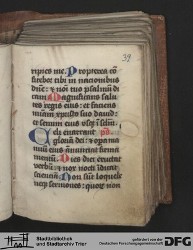 39
ripies me. Propterea cō
fitebor tibi in nacionibus
dñe: et nōi tuo psalmū di
cam Magnificans salu
tes regis eius: et faciens
miam xpisto suo dauid:
et semini eius usqz ī sclm.
Celi enarrant ps
gloriā dei: et opera ma
nuū eius annūciat firma
mentū. Dies diei eructat
verbū: et nox nocti īdicat
sciētiā. Non sūt loquele
neqz sermones: quorū non
Stadtbibliothek
und Stadtarchiv Trier
gefördert von der
Deutschen Forschungsgemeinschaft
DFG